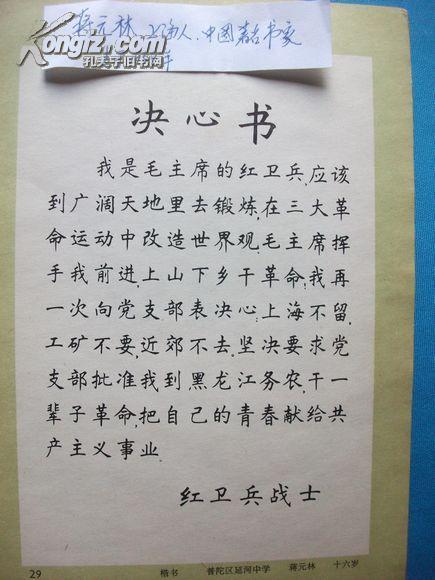 蒋元林 上海人.中国著名书家
Kongfz.com
孔夫子旧书网
决心书
我是毛主席的红卫兵,应该
到广阔天地里去锻炼,在三大革
命运动中改造世界观,毛主席挥
手我前进,上山下乡干革命,我再
一次向党支部表决心:上海不留,
工矿不要,近郊不去,坚决要求党
支部批准我到黑龙江务农,干一
辈子革命,把自己的青春献给共
产主义事业.
红卫兵战士
29 楷书 普陀区延河中学 蒋元林 十六岁